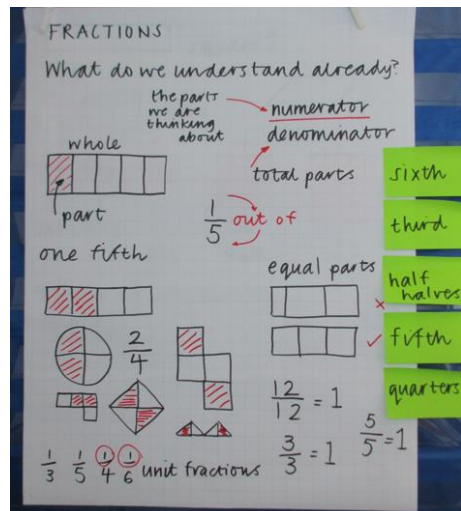 FRACTIONS
What do we understand already?
the parts
we are
thinking
about
numerator
denominator
total parts
whole
part
1/5 out of
one fifth
equal parts
2/4
12/12 = 1
3/3 = 1
5/5 = 1
1/3 1/5 1/4 1/6 unit fractions
sixth
third
half
halves
fifth
quarters